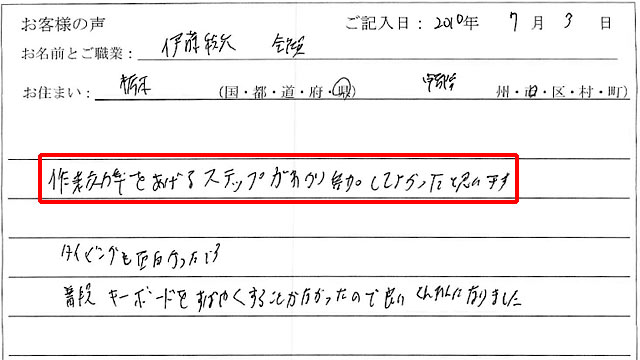 お客様の声 ご記入日：2010年 7月 3日
お名前とご職業： 伊藤
お住まい： 栃木 （国・都・道・府・県） 州・市・区・村・町）
作業効率をあげるステップがわかり参加してよかったと思います
タイピングも面白かったです
普段 キーボードをすばやくすることがなかったので良い くんれんになりました